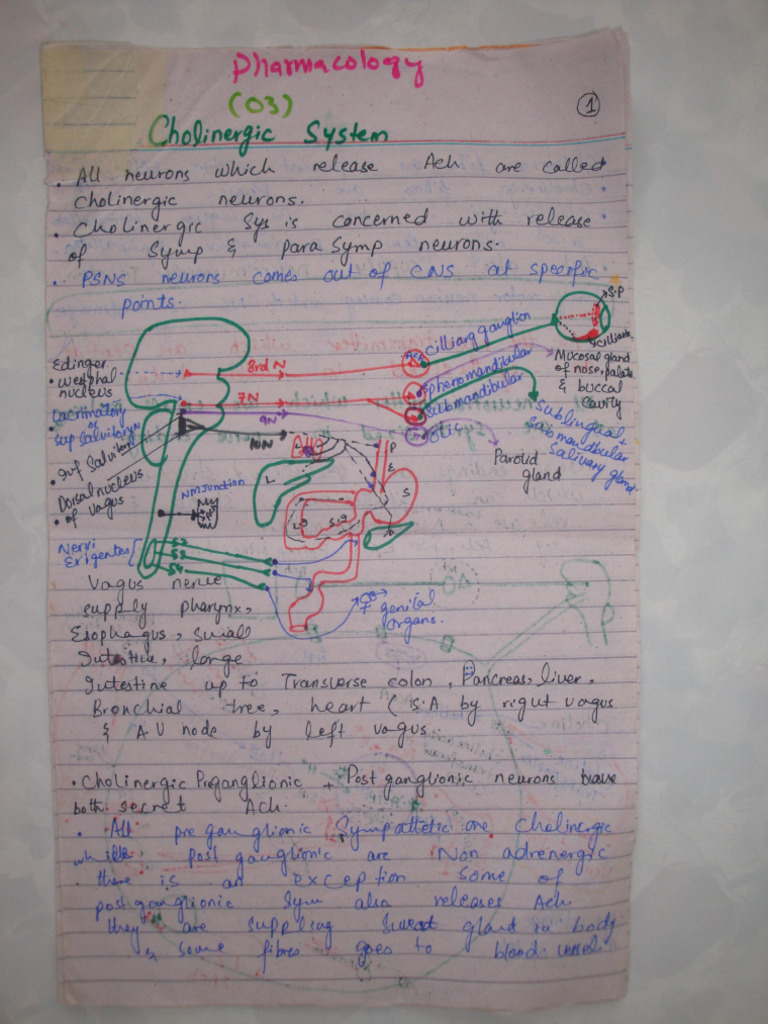 Pharmacology
(03)
1
Cholinergic System
• All neurons which release Ach are called
cholinergic neurons.
• Cholinergic Sys is concerned with release
of Symp & para Symp neurons.
• PSNS neurons comes out of CNS at specific
points.
S.P
cilliary ganglion
cilliary
Edinger
• westphal
nucleus
3rd N
Ach
sphenomandibular
Mucosal gland
of nose, palate
& buccal
cavity
• Lacrimatory
of
Sup Salvitoryn
7N
submandibular
9N
otic
Sublingual +
Sub mandibular
Salivary gland
• Inf Salvitory
10N
Parotid
gland
Dorsal nucleus
• of vagus
NM Junction
L
S
Nervi
Erigentes
S2
S3
S4
genital
organs.
Vagus nerve
supply pharynx,
Esophagus, small
Intestine, large
Intestine up to Transverse colon, Pancreas, liver,
Bronchial tree, heart (S.A by rigut vagus
& A.V node by left vagus
• Cholinergic Preganglionic + Post ganglionic neurons have
both secret Ach.
• All pre ganglionic Sympathetic are Cholinergic
while post ganglionic are Non adrenergic
there is an exception some of
post ganglionic Sym also releases Ach
they are suppling Sweat gland in body
& some fibres goes to blood vessel